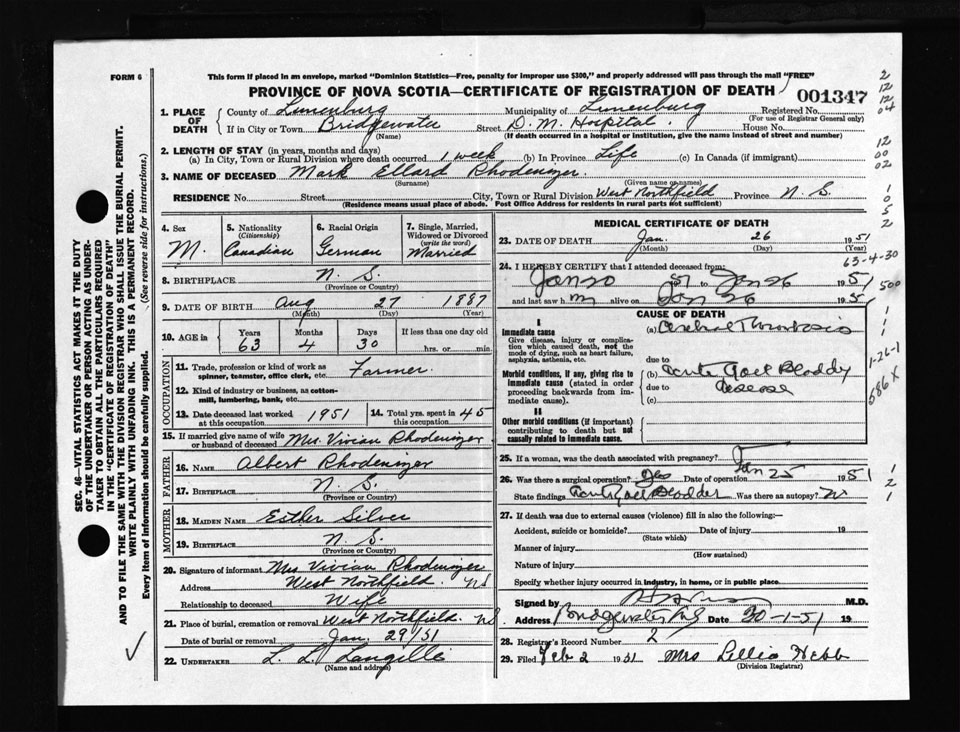 FORM 6
This form if placed in an envelope, marked "Dominion Statistics—Free, penalty for improper use $300," and properly addressed will pass through the mail "FREE"
PROVINCE OF NOVA SCOTIA—CERTIFICATE OF REGISTRATION OF DEATH
001347
1. PLACE OF DEATH
County of Lunenburg Municipality of Lunenburg Registered No.
(For use of Registrar General only)
If in City or Town Bridgewater Street D. M. Hospital. House No.
(Name) (If death occurred in a hospital or institution, give the name instead of street and number)
2. LENGTH OF STAY (in years, months and days)
(a) In City, Town or Rural Division where death occurred 1 week (b) In Province Life (c) In Canada (if immigrant)
3. NAME OF DECEASED Mark Ellard Rhodenizer
(Surname) (Given name or names)
RESIDENCE No. Street City, Town or Rural Division West Northfield Province N. S.
(Residence means usual place of abode. Post Office Address for residents in rural parts not sufficient)
4. Sex M.
5. Nationality (Citizenship) Canadian
6. Racial Origin German
7. Single, Married, Widowed or Divorced (write the word) Married
8. BIRTHPLACE N. S.
(Province or Country)
9. DATE OF BIRTH Aug 27 1887
(Month) (Day) (Year)
10. AGE in Years Months Days If less than one day old
63 4 30 hrs. or min.
OCCUPATION
11. Trade, profession or kind of work as spinner, teamster, office clerk, etc. Farmer.
12. Kind of industry or business, as cotton-mill, lumbering, bank, etc.
13. Date deceased last worked at this occupation 1951
14. Total yrs. spent in this occupation 45
15. If married give name of wife or husband of deceased Mrs. Vivian Rhodenizer
FATHER
16. NAME Albert Rhodenizer
17. BIRTHPLACE N. S.
(Province or Country)
MOTHER
18. MAIDEN NAME Esther Silver
19. BIRTHPLACE N. S.
(Province or Country)
20. Signature of informant Mrs Vivian Rhodenizer
Address West Northfield. NS
Relationship to deceased Wife
21. Place of burial, cremation or removal West Northfield. NS
Date of burial or removal Jan. 29/51
22. UNDERTAKER L. L. Langille
(Name and address)
MEDICAL CERTIFICATE OF DEATH
23. DATE OF DEATH Jan. 26 1951
(Month) (Day) (Year)
24. I HEREBY CERTIFY that I attended deceased from:
Jan 20 51 to Jan 26 1951
and last saw h m alive on Jan 26 1951
CAUSE OF DEATH
I
Immediate cause (a) Cerebral Thrombosis
Give disease, injury or complication which caused death, not the mode of dying, such as heart failure, asphyxia, asthenia, etc.
due to
Morbid conditions, if any, giving rise to immediate cause (stated in order proceeding backwards from immediate cause).
(b) Acute Gael Bladdy
due to Disease
(c)
II
Other morbid conditions (if important) contributing to death but not causally related to immediate cause.
25. If a woman, was the death associated with pregnancy?
26. Was there a surgical operation? Yes Date of operation Jan 25 1951
State findings Acute Gael Bladder Was there an autopsy? No
27. If death was due to external causes (violence) fill in also the following:—
Accident, suicide or homicide? Date of injury 19
(State which)
Manner of injury
(How sustained)
Nature of injury
Specify whether injury occurred in industry, in home, or in public place.
Signed by M.D.
Address Bridgewater NS Date 30-1-51 19
28. Registrar's Record Number 2
29. Filed Feb 2 1951 Mrs Lellia Hebb
(Division Registrar)
SEC. 46—VITAL STATISTICS ACT MAKES IT THE DUTY
OF THE UNDERTAKER OR PERSON ACTING AS UNDER-
TAKER TO OBTAIN ALL THE PARTICULARS REQUIRED
IN THE "CERTIFICATE OF REGISTRATION OF DEATH"
AND TO FILE THE SAME WITH THE DIVISION REGISTRAR WHO SHALL ISSUE THE BURIAL PERMIT.
WRITE PLAINLY WITH UNFADING INK. THIS IS A PERMANENT RECORD.
Every item of information should be carefully supplied. (See reverse side for instructions.)
2
12
12
04
12
00
02
1
0
5
2
63-4-30
500
1
1
1
1-26-1
586X
1
2
1